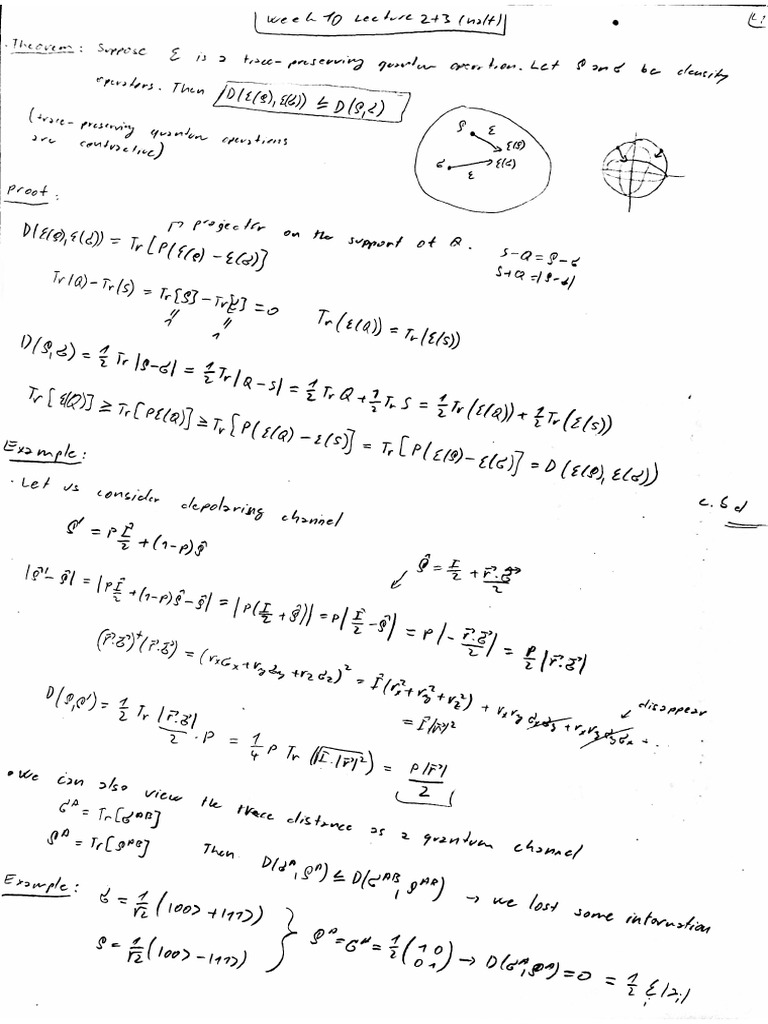 Week 10 Lecture 2+3 (half)
L1
. Theorem: Suppose ℰ is a trace-preserving quantum operation. Let ρ and σ be density
operators. Then D(ℰ(ρ),ℰ(σ)) ≤ D(ρ,σ)
(trace-preserving quantum operations
are contractive)
ρ ℰ ℰ(ρ)
σ ℰ ℰ(σ)
Proof:
projector on the support of Q.
D(ℰ(ρ),ℰ(σ)) = Tr[P(ℰ(ρ) - ℰ(σ)]
S-Q = ρ-σ
S+Q = |ρ-σ|
Tr(Q) - Tr(S) = Tr[ρ] - Tr[σ] = 0 Tr(ℰ(Q)) = Tr(ℰ(S))
" "
1 1
D(ρ,σ) = 1/2 Tr|ρ-σ| = 1/2 Tr|Q-S| = 1/2 Tr Q + 1/2 Tr S = 1/2 Tr(ℰ(Q)) + 1/2 Tr(ℰ(S))
Tr[ℰ(Q)] ≥ Tr[Pℰ(Q)] ≥ Tr[P(ℰ(Q) - ℰ(S)] = Tr[P(ℰ(ρ) - ℰ(σ)] = D(ℰ(ρ), ℰ(σ))
Example:
· Let us consider depolaring channel
ρ' = p Î/2 + (1-p)ρ̂
ρ̂ = I/2 + r⃗·σ⃗/2
|ρ̂' - ρ̂| = |p Î/2 + (1-p)ρ̂ - ρ̂| = |p(Î/2 + ρ̂)| = p|Î/2 - ρ̂| = p|- r⃗·σ⃗/2| = p/2 |r⃗·σ⃗|
(r⃗·σ⃗)†(r⃗·σ⃗) = (rxσx + ryσy + rzσz)² = Î(rx² + ry² + rz²) + rxry σxσy + rxry σyσx + ..
disappear
= Î|r⃗|²
D(ρ,ρ') = 1/2 Tr |r⃗·σ⃗|/2 · p = 1/4 p Tr(√(I·|r⃗|²)) = p|r⃗|/2
• We can also view the trace distance as a quantum channel
σᴬ = Tr[σᴬᴮ]
ρᴬ = Tr[ρᴬᴮ] Then D(σᴬ, ρᴬ) ≤ D(σᴬᴮ, ρᴬᴮ) → we lost some information
Example: σ = 1/√2 (|00> + |11>)
ρ = 1/√2 (|00> - |11>) } ρᴬ = σᴬ = 1/2 (1 0 0 1) → D(σᴬ, ρᴬ) = 0 = 1/2 Σ |λi|